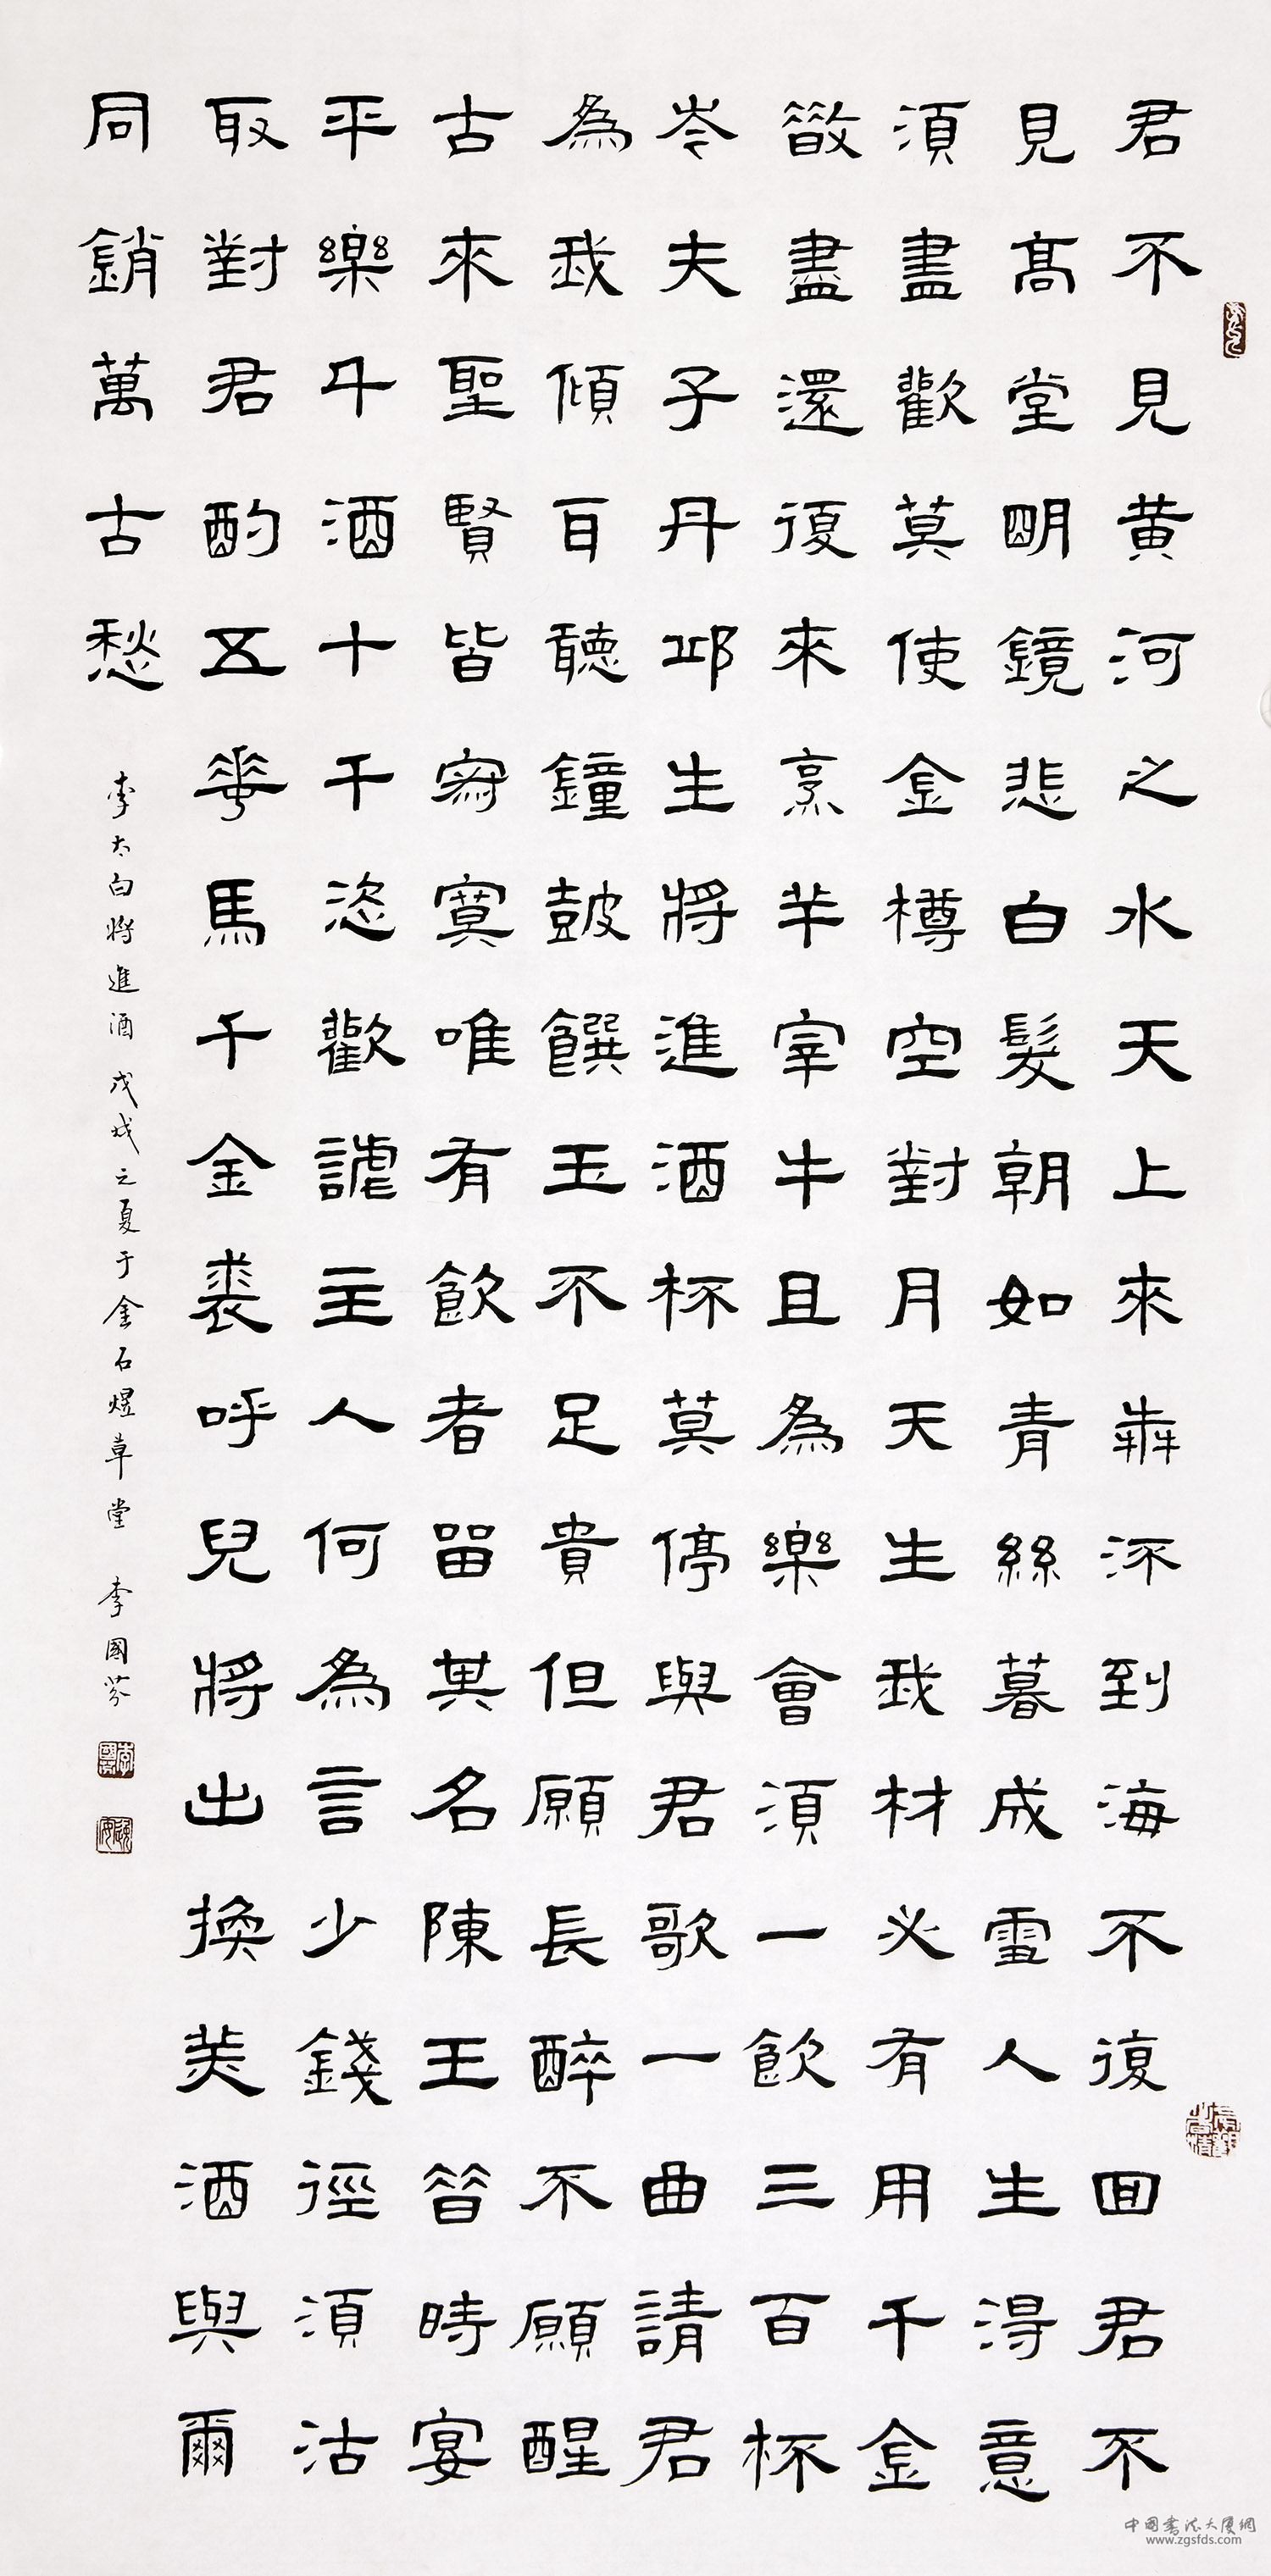 君不見黄河之水天上來犇㳅到海不復囬君不
見高堂明鏡悲白髮朝如青絲暮成雪人生得意
須盡歡莫使金樽空對月天生我材必有用千金
散盡還復來烹羊宰牛且為樂會須一飲三百杯
岑夫子丹邱生將進酒杯莫停與君歌一曲請君
為我傾耳聽鐘鼓饌玉不足貴但願長醉不願醒
古來聖賢皆寂寞唯有飲者留其名陳王昔時宴
平樂斗酒十千恣歡謔主人何為言少錢徑須沽
取對君酌五華馬千金裘呼兒將出換美酒與爾
同銷萬古愁
李太白將進酒 戊戌之夏于金石煜草堂 李國芬
中国书法大厦網
www.zgsfds.com